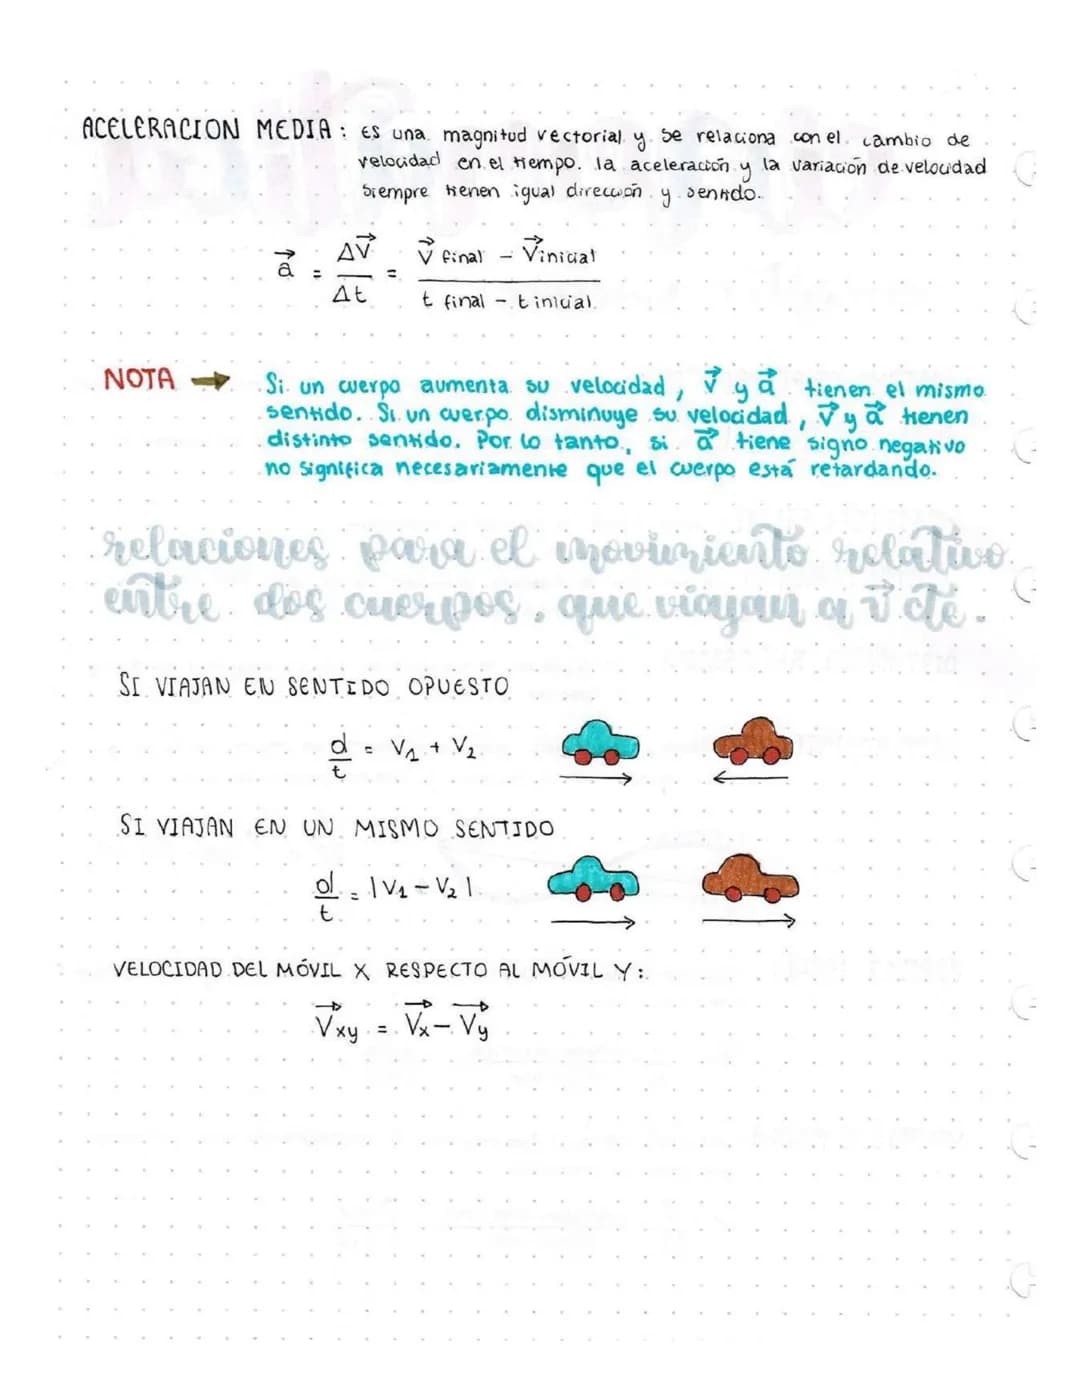 ACELERACION MEDIA: es una magnitud vectorial y se relaciona con el cambio de
velocidad en el tiempo. la aceleración y la variación de velocidad
siempre tienen igual dirección y sentido.
a⃗ = ΔV⃗ / Δt = V⃗ final - V⃗ inicial / t final - t inicial
NOTA → Si un cuerpo aumenta su velocidad, v⃗ y a⃗ tienen el mismo
sentido. Si un cuerpo disminuye su velocidad, v⃗ y a⃗ tienen
distinto sentido. Por lo tanto, si a⃗ tiene signo negativo
no significa necesariamente que el cuerpo está retardando.
relaciones para el movimiento relativo
entre dos cuerpos, que viajan a v⃗ cte.
SI VIAJAN EN SENTIDO OPUESTO
d/t = V₁ + V₂
SI VIAJAN EN UN MISMO SENTIDO
d/t = |V₁ - V₂|
VELOCIDAD DEL MÓVIL X RESPECTO AL MÓVIL Y:
V⃗xy = V⃗x - V⃗y